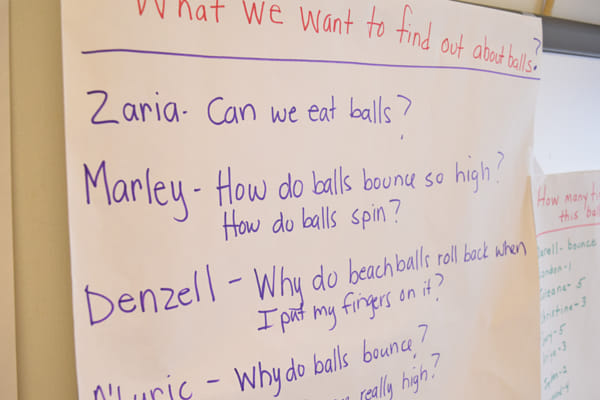 What we want to find out about balls?
Zaria- Can we eat balls?
Marley - How do balls bounce so high?
How do balls spin?
Denzell - Why do beachballs roll back when
I put my fingers on it?
- Why do balls bounce?
really high?
How many
this ball
bounce
- 1
- 5
- 3
- 5
- 3
- 2